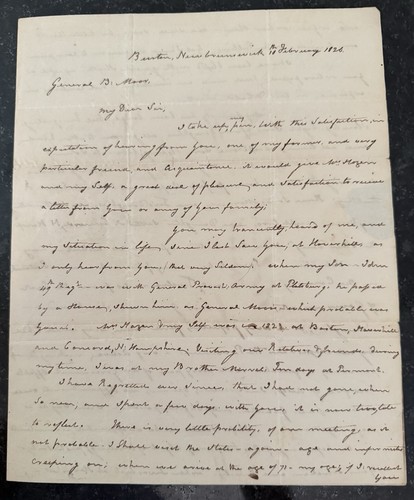 Burton, Newbrunswick 10th February 1826
General B. Moor,
My Dear Sir,
I take up my pen, with this Satisfaction, in
expectation of hearing from you, one of my former, and very
particular friend and Acquaintance. it would give Mrs Hazen
and my Self, a great deal of pleasure, and Satisfaction to receive
a letter from you or any of your family,
You may have heard of me, and
my Situation in life, Since I last Saw you, at Haverhill, as
I only hear from you (that very Seldom) when my Son John
49th Regt was with General Army at Plattsburg, he passed
by a House, shewn him as General Moors, which probable was
yours. Mrs Hazen & my Self was in 1822 at Boston, Haverhill
and Concord, N. Hampshire, Visiting our Relatives & friends, during
my time, I was at my Brother Ten days at Vermont.
I have Regretted ever Sinces that I had not gone, when
So near, and Spent a few days with you, it is now too late
to reflect. There is very little probility of our meeting, as it
not probable I Shall visit the States again - age, and infirmities
creeping on; when we arive at the age of 71 - my age, if I recollect
your